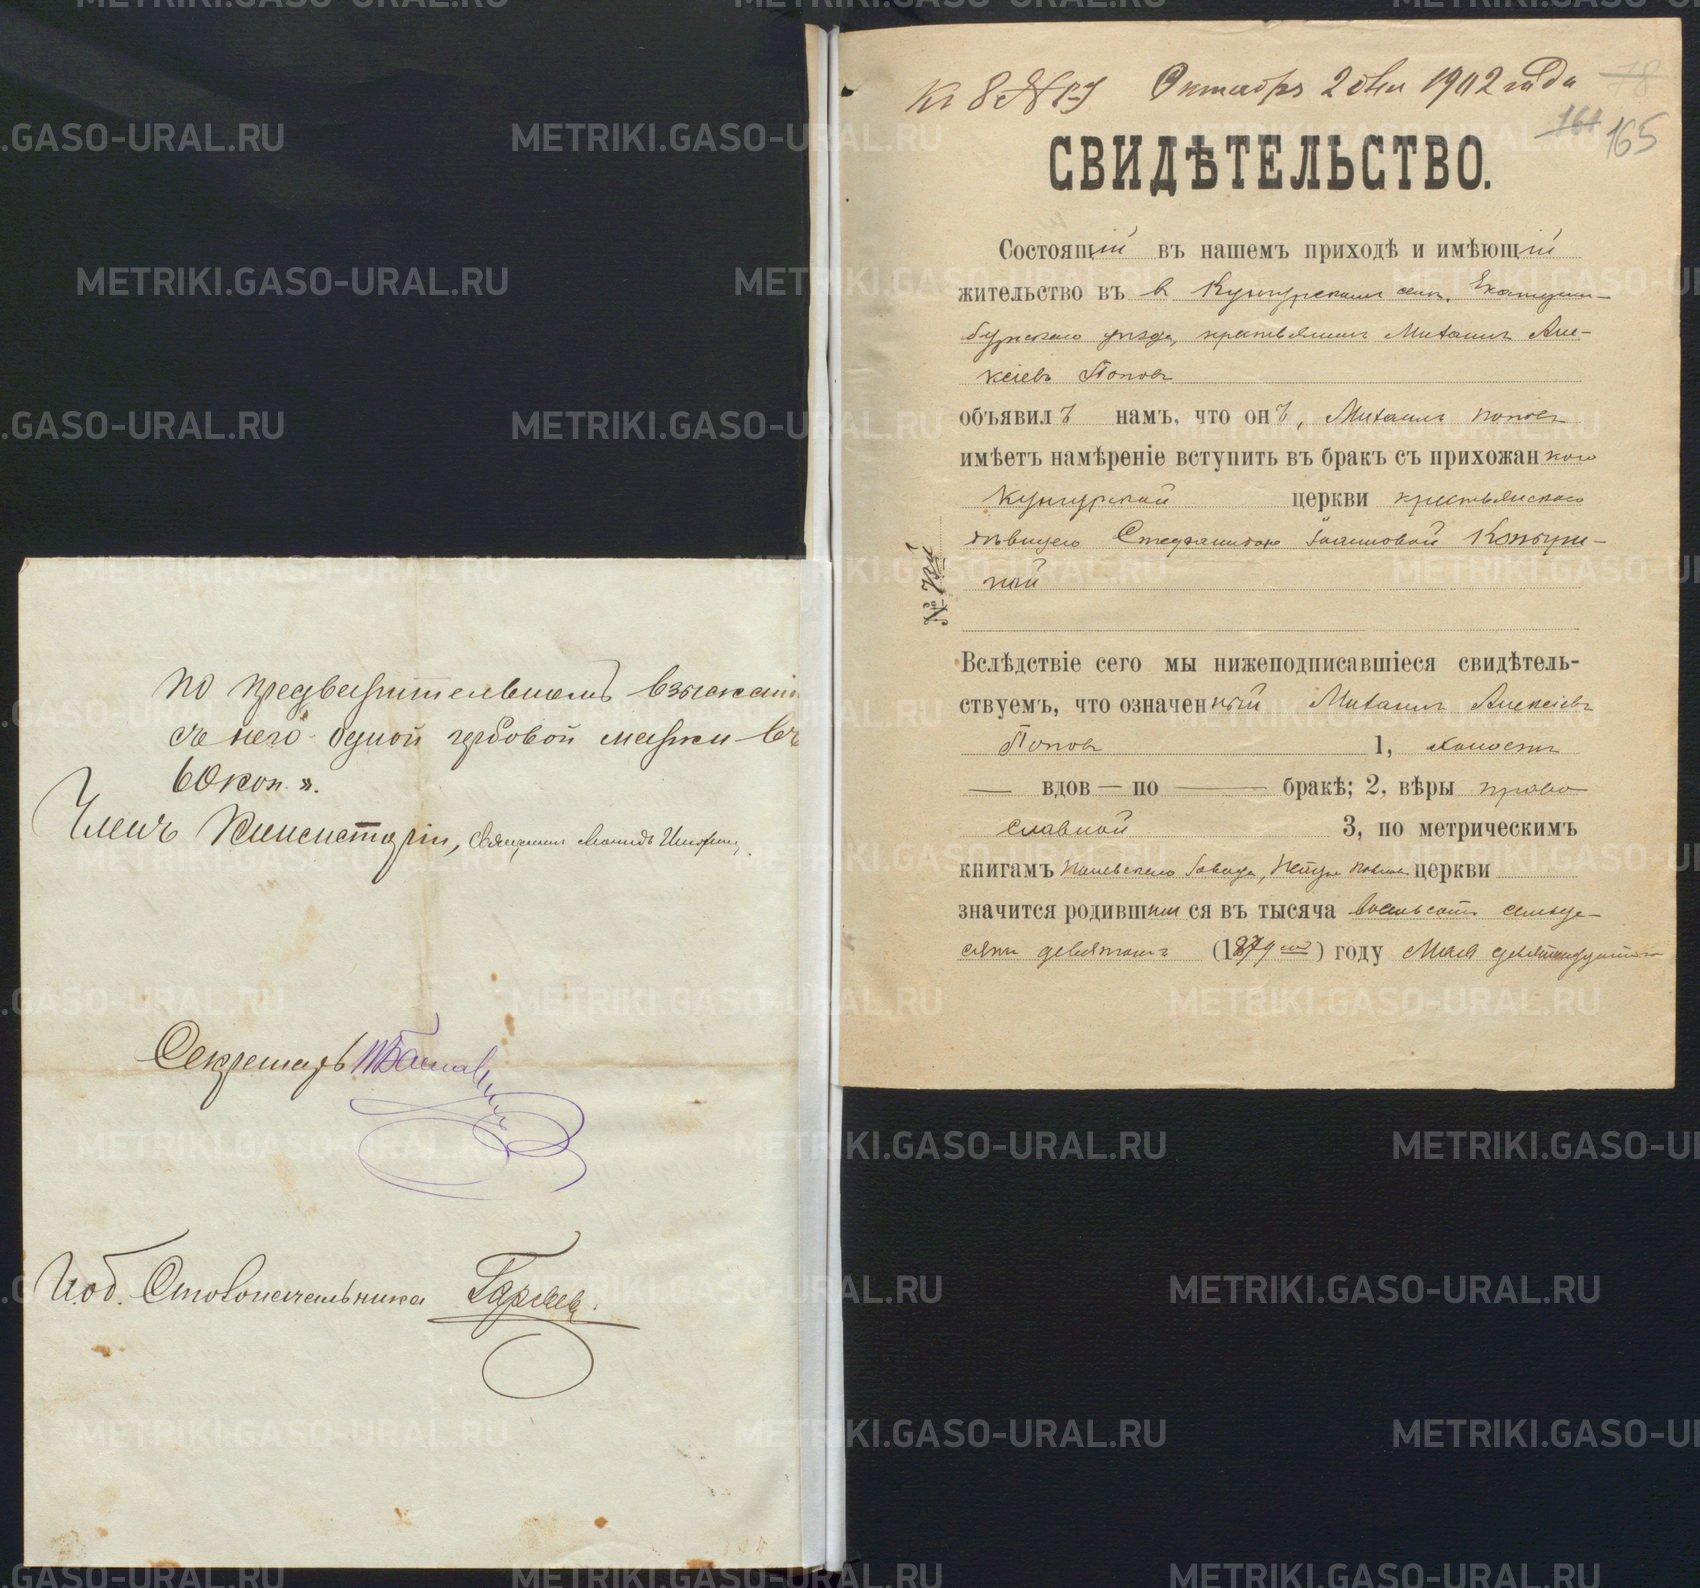 по предварительномъ взысканіи
съ него одной гербовой марки въ
60 коп.».
Членъ Консисторіи, священникъ
Секретарь
И. об. Столоначальника
Къ 8 № Октября 2 дня 1902 года
78
164 165
СВИДѢТЕЛЬСТВО.
Состоящій въ нашемъ приходѣ и имѣющій
жительство въ в Кунгурскомъ сел. Екатерин-
бургскаго уѣзда, крестьянинъ Михаилъ Але-
ксіевъ Поповъ
объявилъ намъ, что онъ, Михаилъ Поповъ
имѣетъ намѣреніе вступить въ бракъ съ прихожанкою
Кунгурской церкви крестьянскою
дѣвицею Стефанидою Іоанновой
ной
№
Вслѣдствіе сего мы нижеподписавшіеся свидѣтель-
ствуемъ, что означенный Михаилъ Алексіевъ
Поповъ 1, холостъ
— вдов — по — бракѣ; 2, вѣры право
славной 3, по метрическимъ
книгамъ Полевскаго завода, Петро Павлов. церкви
значится родившимся въ тысяча восемьсотъ семьде-
сятъ девятомъ (1879 мъ) году Мая девятнадцатаго
METRIKI.GASO-URAL.RU